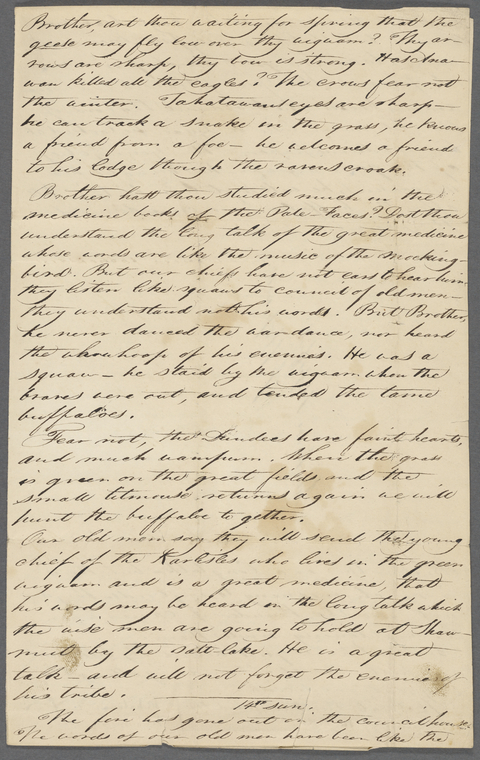 Brother, art thou waiting for spring that the
geese may fly low over thy wigwam? Thy ar-
rows are sharp, thy bow is strong. Has Ana-
wan killed all the eagles? The crows fear not
the winter. Tahatawans eyes are sharp—
he can track a snake in the grass, he knows
a friend from a foe— he welcomes a friend
to his lodge though the ravens croak.
Brother hast thou studied much in the
medicine books of the Pale-Faces? Dost thou
understand the long talk of the great medicine
whose words are like the music of the mocking-
bird. But our chiefs have not ears to hear him
they listen like squaws to council of old men—
they understand not his words. But Brother,
he never danced the war-dance, nor heard
the whowhoop of his enemies. He was a
squaw— he staid by the wigwam when the
braves were out, and tended the tame
buffaloes.
Fear not, the Dundees have faint hearts,
and much wampum. When the grass
is green on the great fields, and the
small titmouse returns again we will
hunt the buffaloe to gether.
Our old men say they will send the young
chief of the Karlisles who lives in the green
wigwam and is a great medicine, that
his words may be heard in the long talk which
the wise men are going to hold at Shaw-
mut by the salt-lake. He is a great
talk— and will not forget the enemies of
his tribe.
14th sun.
The fire has gone out on the council house.
The words of our old men have been like the